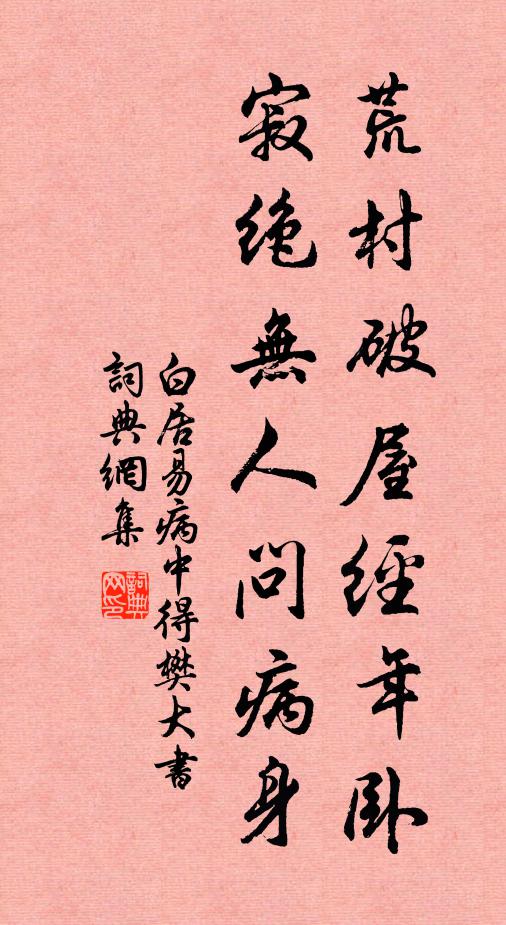 荒村破屋經年卧
寂絶無人問病身
白居易病中得樊大書
詞典網集
詞典网印